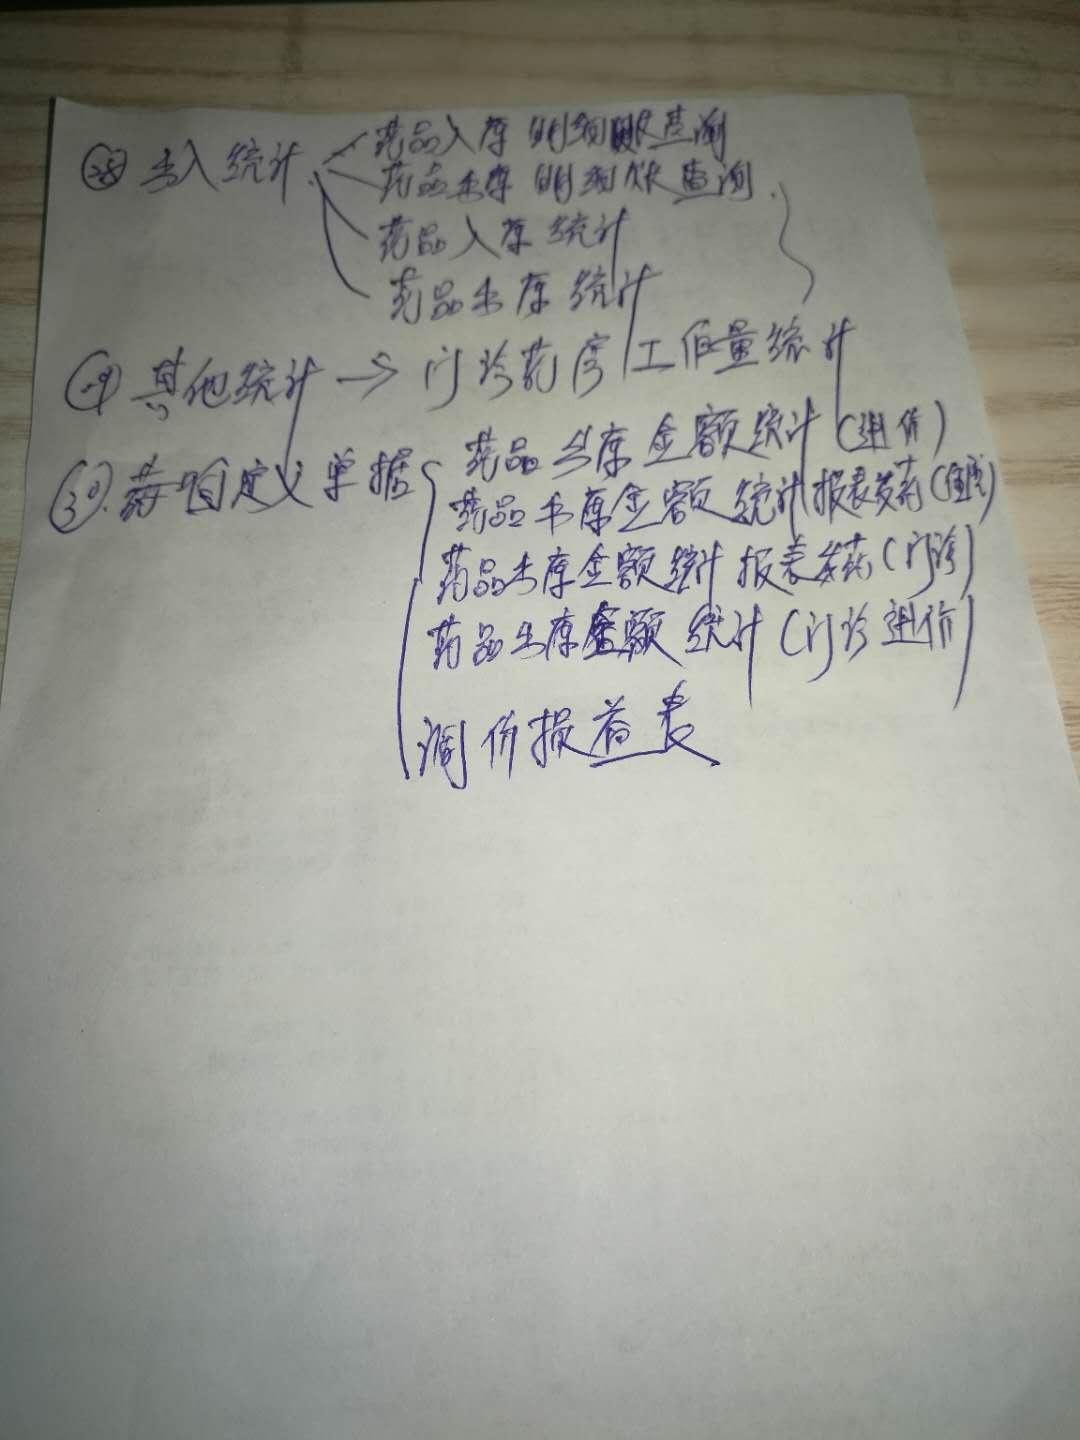 ㉘ 出入统计 药品入库明细账查询
药品出库明细账查询
药品入库统计
药品出库统计
㉙ 其他统计 → 门诊药房工作量统计
㉚ 自定义单据 药品出库金额统计(进价)
药品出库金额统计报表发药(住院)
药品出库金额统计报表发药(门诊)
药品出库金额统计(门诊进价)
调价损益表